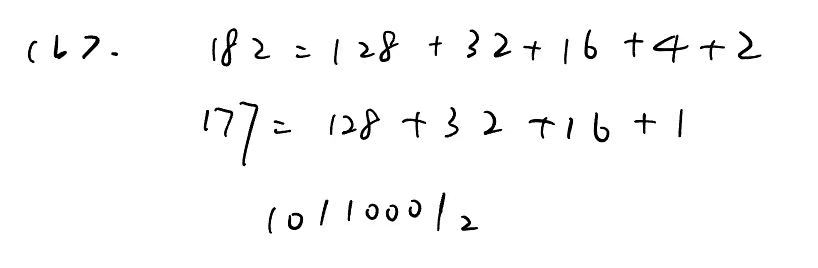 (b).  182 = 128 + 32 + 16 + 4 + 2
177 = 128 + 32 + 16 + 1
10110001₂